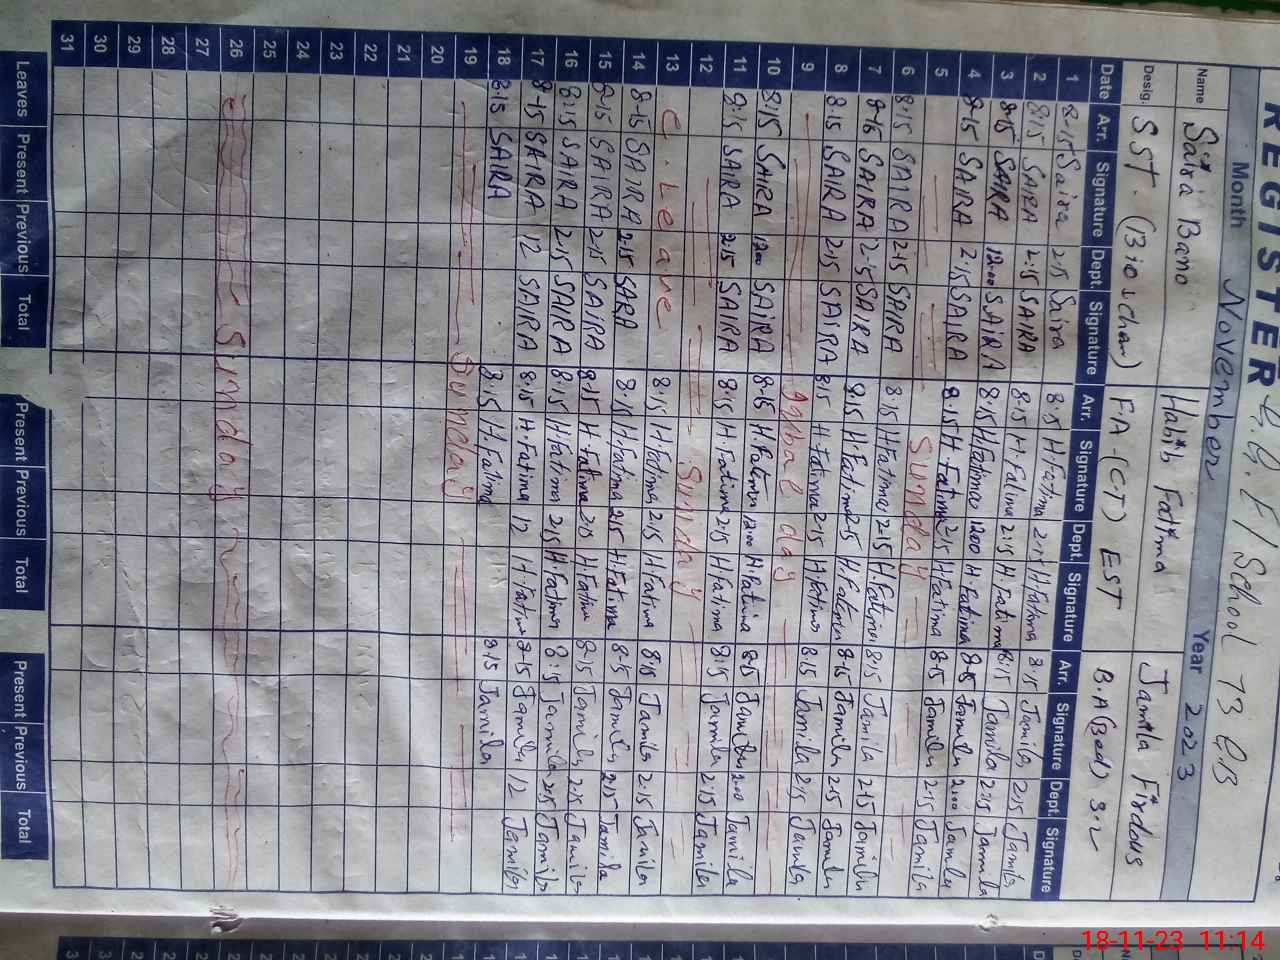 REGISTER
G.G. E/School 73 GB
Month November Year 2023
Name Saira Bano Habib Fatima Jamila Firdous
Desig. SST. (Bio & Chem) FA-(CT) EST B.A (Bed)
Date Arr. Signature Dept. Signature Arr. Signature Dept. Signature Arr. Signature Dept. Signature
1 8-15 Saira 2:15 Saira 8:15 H.Fatima 2:15 H.Fatima 8:15 Jamila 2:15 Jamila
2 8:15 SAIRA 2:15 SAIRA 8:15 H.Fatima 2:15 H.Fatima 8:15 Jamila 2:15 Jamila
3 8-15 SAIRA 12:00 SAIRA 8:15 H.Fatima 12:00 H.Fatima 8:15 Jamila 12:00 Jamila
4 8-15 SAIRA 2:15 SAIRA 8:15 H.Fatima 2:15 H.Fatima 8:15 Jamila 2:15 Jamila
5 Sunday
6 8:15 SAIRA 2:15 SAIRA 8:15 H.Fatima 2:15 H.Fatima 8:15 Jamila 2:15 Jamila
7 8-15 SAIRA 2-15 SAIRA 8:15 H.Fatima 2:15 H.Fatima 8:15 Jamila 2:15 Jamila
8 8:15 SAIRA 2:15 SAIRA 8:15 H.Fatima 2:15 H.Fatima 8:15 Jamila 2:15 Jamila
9 Iqbal day
10 8:15 SAIRA 12:00 SAIRA 8-15 H.Fatima 12:00 H.Fatima 8:15 Jamila 12:00 Jamila
11 8:15 SAIRA 2:15 SAIRA 8:15 H.Fatima 2:15 H.Fatima 8:15 Jamila 2:15 Jamila
12 Sunday
13 C. Leave 8:15 H.Fatima 2:15 H.Fatima 8:15 Jamila 2:15 Jamila
14 8-15 SAIRA 2:15 SAIRA 8:15 H.Fatima 2:15 H.Fatima 8:15 Jamila 2:15 Jamila
15 8-15 SAIRA 2:15 SAIRA 8:15 H.Fatima 2:15 H.Fatima 8-15 Jamila 2:15 Jamila
16 8:15 SAIRA 2:15 SAIRA 8:15 H.Fatima 2:15 H.Fatima 8:15 Jamila 2:15 Jamila
17 8-15 SAIRA 12 SAIRA 8:15 H.Fatima 12 H.Fatima 8-15 Jamila 12 Jamila
18 8:15 SAIRA 8:15 H.Fatima 8:15 Jamila
19 Sunday
20
21
22
23
24
25
26 Sunday
27
28
29
30
31
Leaves Present Previous Total Present Previous Total Present Previous Total
18-11-23 11:14